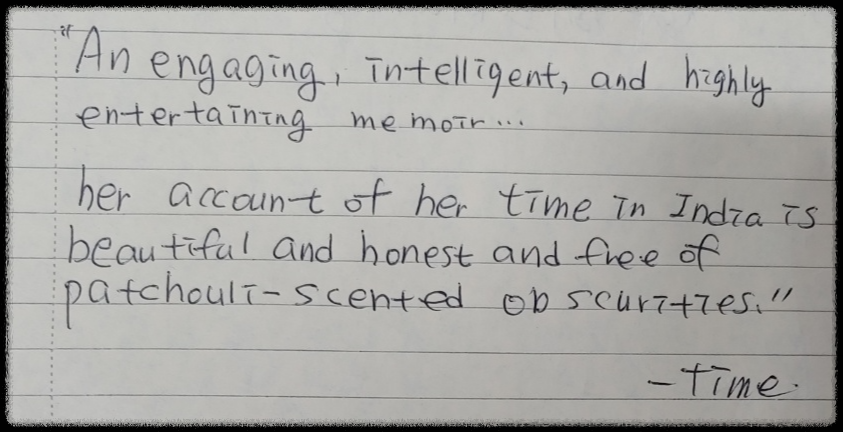 "An engaging, intelligent, and highly
entertaining memoir...
her account of her time in India is
beautiful and honest and free of
patchouli-scented obscurities."
-time.